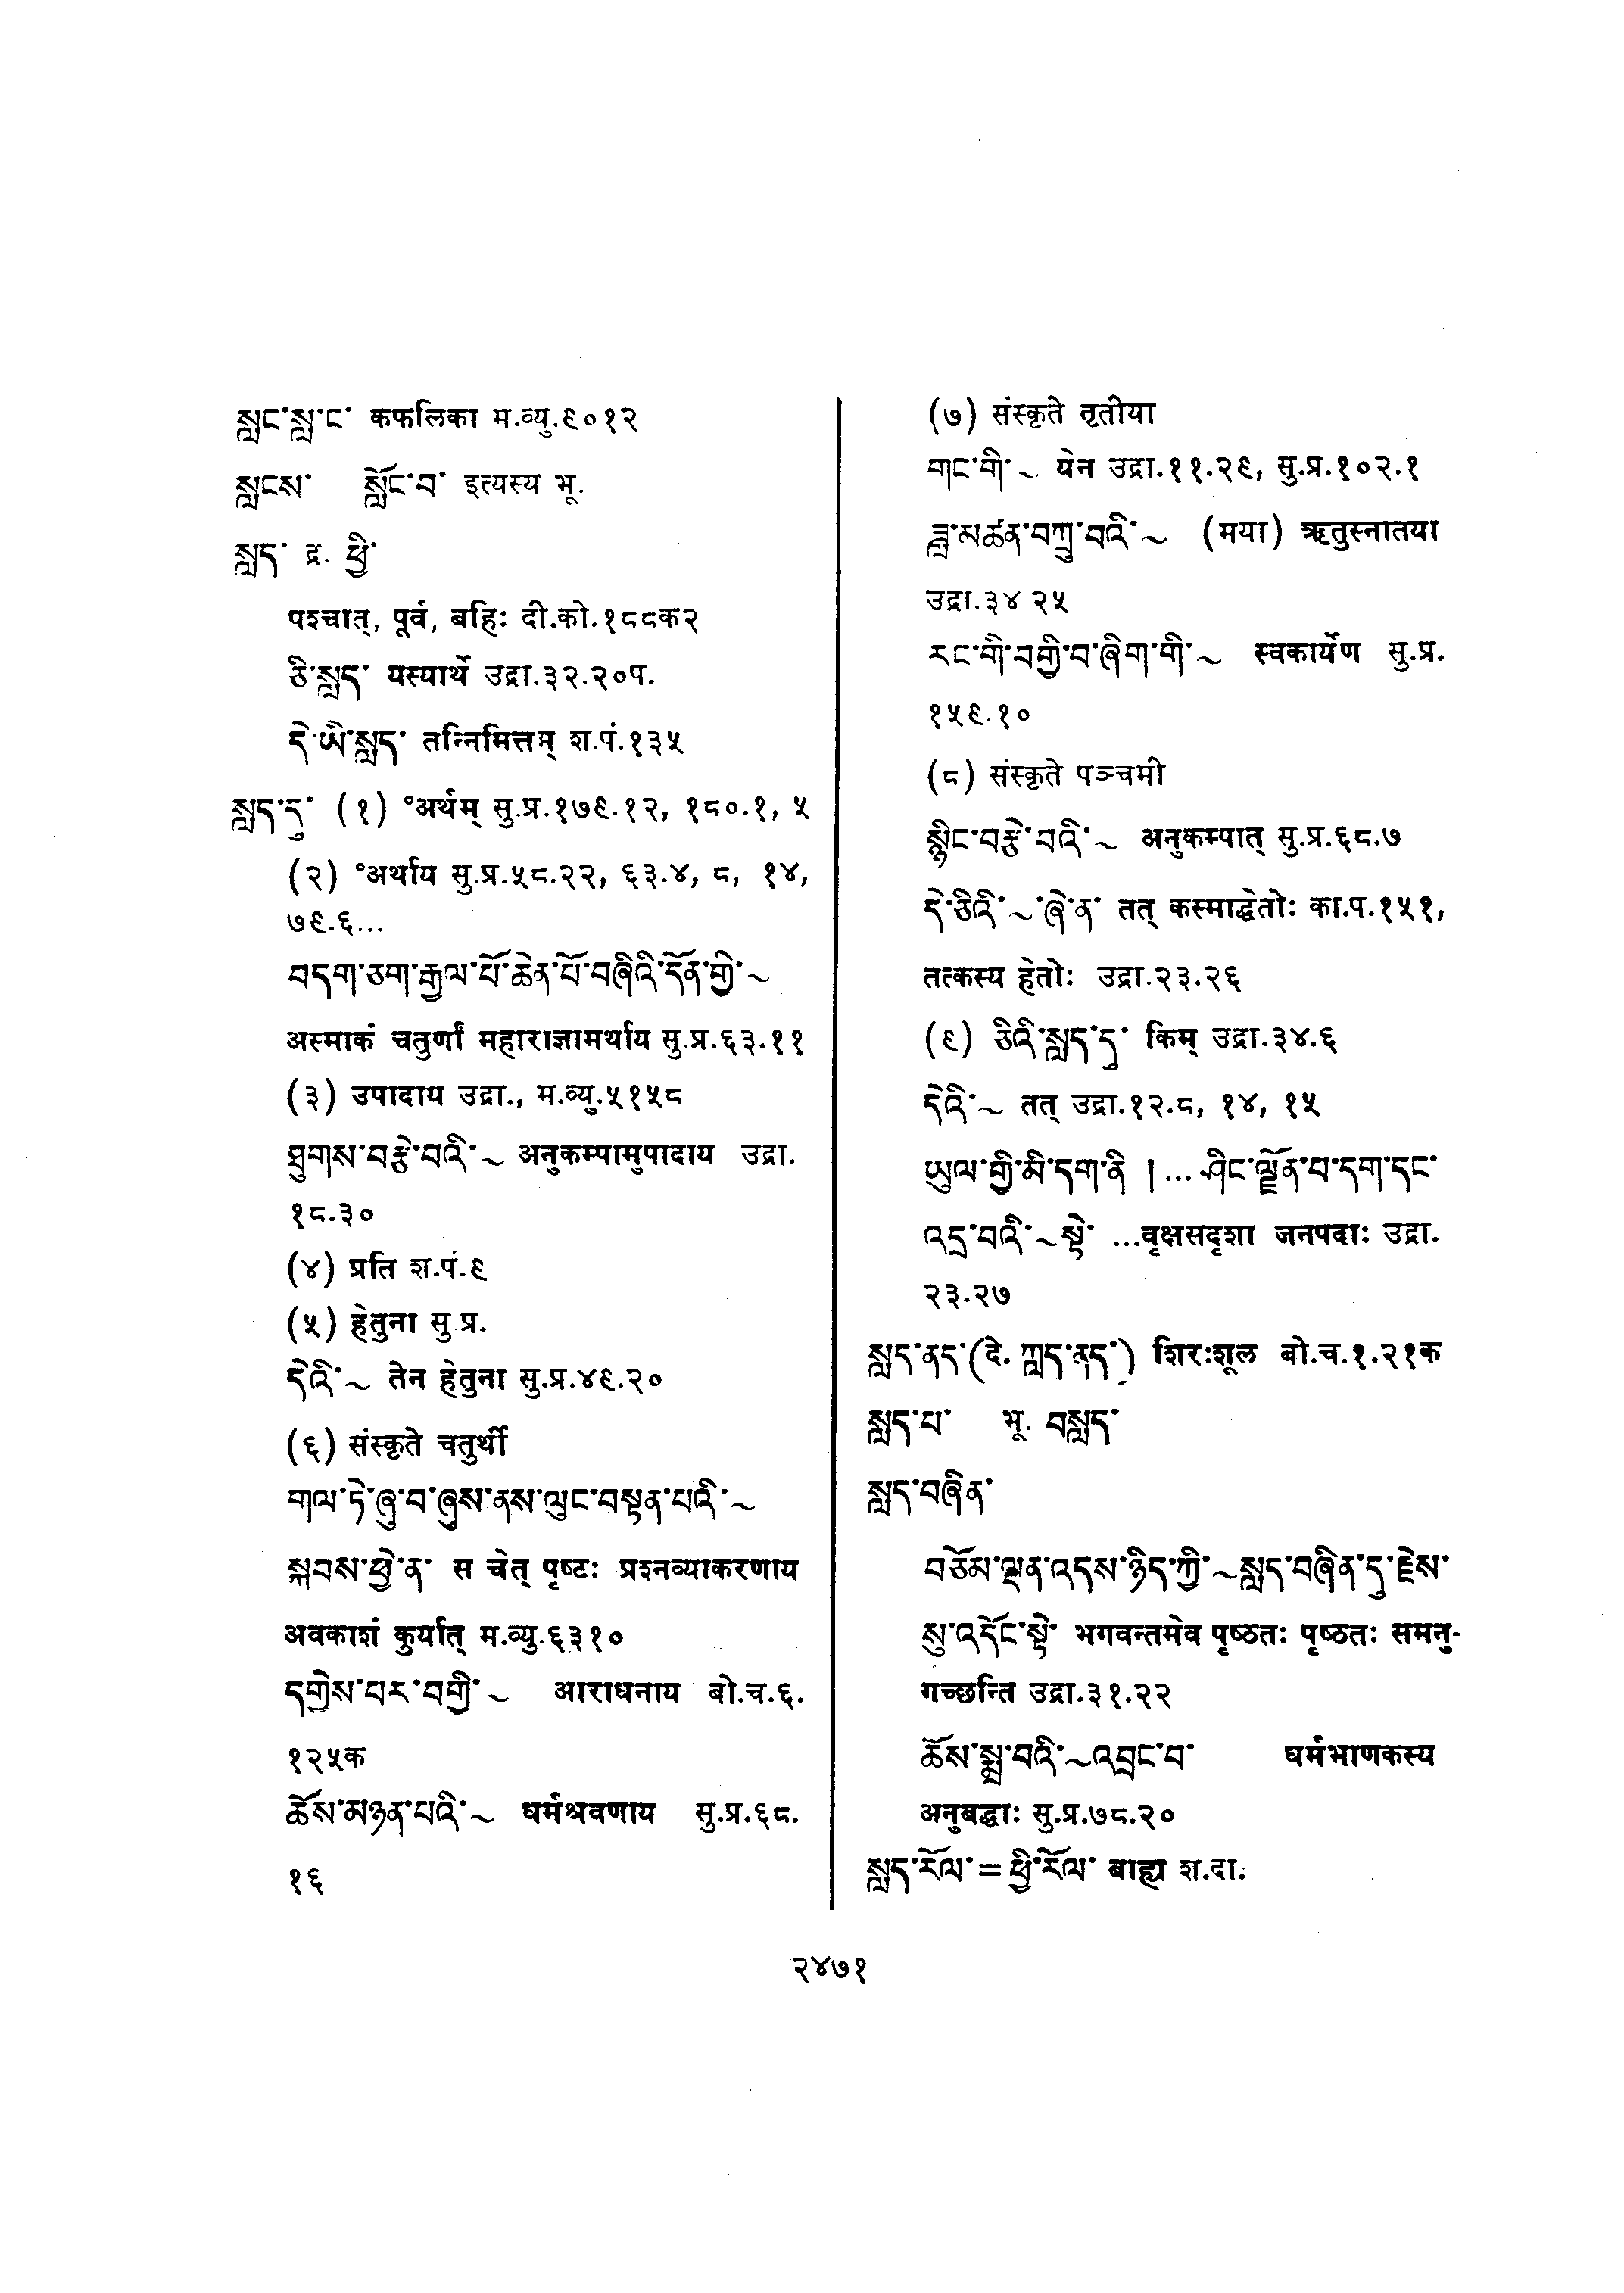 སླང་སླ་ང་ कफलिका म.व्यु.९०१२
སླངས་ སློང་བ་ इत्यस्य भू.
སླད་ द्र. ཕྱི་
पश्चात्, पूर्व, बहिः दी.को.१८८क२
ཅི་སླད་ यस्यार्थे उद्रा.३२.२०प.
དེ་ཡི་སླད་ तन्निमित्तम् श.पं.१३५
སླད་དུ་ (१) °अर्थम् सु.प्र.१७९.१२, १८०.१, ५
(२) °अर्थाय सु.प्र.५८.२२, ६३.४, ८, १४,
७९.६...
བདག་ཅག་རྒྱལ་པོ་ཆེན་པོ་བཞིའི་དོན་གྱི་~
अस्माकं चतुर्णां महाराज्ञामर्थाय सु.प्र.६३.११
(३) उपादाय उद्रा., म.व्यु.५१५८
ཐུགས་བརྩེ་བའི་~ अनुकम्पामुपादाय उद्रा.
१८.३०
(४) प्रति श.पं.९
(५) हेतुना सु प्र.
དེའི་~ तेन हेतुना सु.प्र.४९.२०
(६) संस्कृते चतुर्थी
གལ་ཏེ་ཞུ་བ་ཞུས་ནས་ལུང་བསྟན་པའི་~
སྐབས་ཕྱེ་ན་ स चेत् पृष्टः प्रश्नव्याकरणाय
अवकाशं कुर्यात् म.व्यु.६३१०
དགྱེས་པར་བགྱི་~ आराधनाय बो.च.६.
१२५क
ཆོས་མཉན་པའི་~ धर्मश्रवणाय सु.प्र.६८.
१६
(७) संस्कृते तृतीया
གང་གི་~ येन उद्रा.११.२९, सु.प्र.१०२.१
ཟླ་མཚན་བཀྲུ་བའི་~ (मया) ऋतुस्नातया
उद्रा.३४ २५
རང་གི་བགྱི་བ་ཞིག་གི་~ स्वकार्येण सु.प्र.
१५९.१०
(८) संस्कृते पञ्चमी
སྙིང་བརྩེ་བའི་~ अनुकम्पात् सु.प्र.६८.७
དེ་ཅིའི་~་ཞེ་ན་ तत् कस्माद्धेतोः का.प.१५१,
तत्कस्य हेतोः उद्रा.२३.२६
(९) ཅིའི་སླད་དུ་ किम् उद्रा.३४.६
དེའི་~ तत् उद्रा.१२.८, १४, १५
ཡུལ་གྱི་མི་དག་ནི །... ཤིང་ལྗོན་པ་དག་དང་
འདྲ་བའི་~སྟེ་ ...वृक्षसदृशा जनपदाः उद्रा.
२३.२७
སླད་ནད་(दे. ཀླད་ནད་) शिरःशूल बो.च.१.२१क
སླད་པ་ भू. བསླད་
སླད་བཞིན་
བཅོམ་ལྡན་འདས་ཉིད་ཀྱི་~སླད་བཞིན་དུ་རྗེས་
སུ་འདོང་སྟེ་ भगवन्तमेव पृष्ठतः पृष्ठतः समनु-
गच्छन्ति उद्रा.३१.२२
ཆོས་སྨྲ་བའི་~འབྲང་བ་ धर्मभाणकस्य
अनुबद्धाः सु.प्र.७८.२०
སླད་རོལ་=ཕྱི་རོལ་ बाह्य श.दा.
२४७१